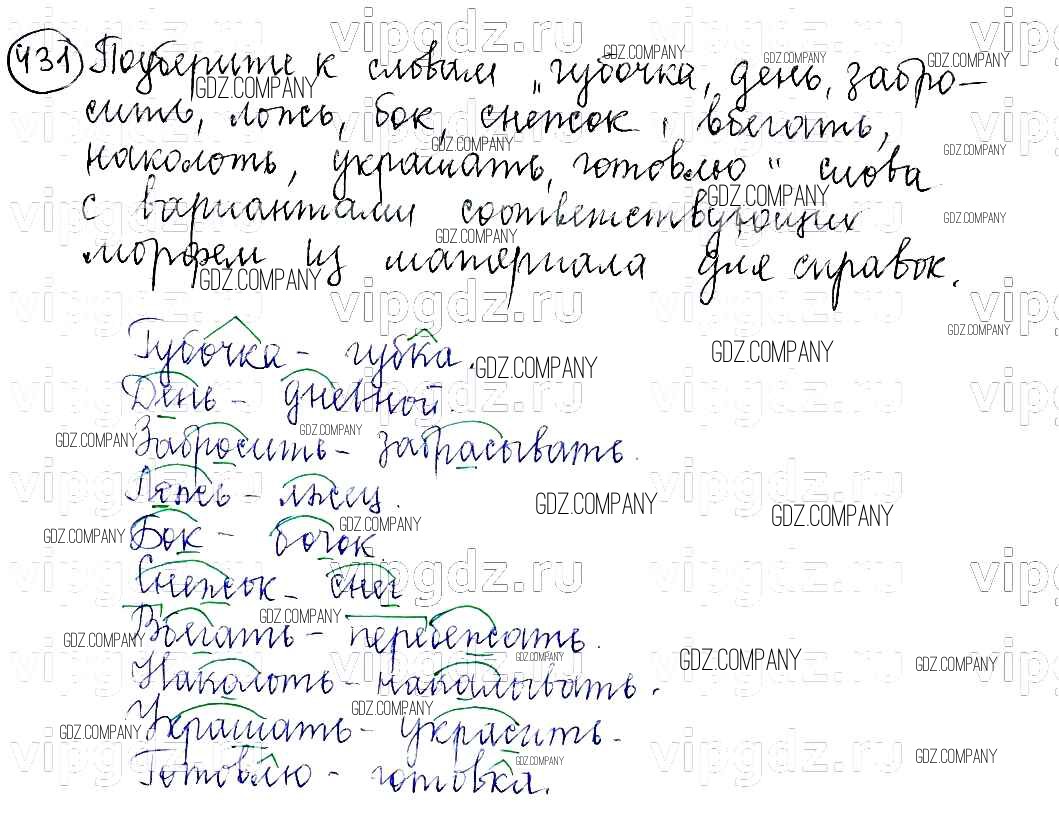 431 Подберите к словам „губочка, день, забро-
сить, ложь, бок, снежок, вбегать,
наколоть, украшать, готовлю" слова
с вариантами соответствующих
морфем из материала для справок.
Губочка – губка.
День – дневной.
Забросить – забрасывать.
Ложь – лжец.
Бок – бочок.
Снежок – снег
Вбегать – перебежать.
Наколоть – накалывать.
Украшать – украсить.
Готовлю – готовка.
vipgdz.ru
GDZ.COMPANY